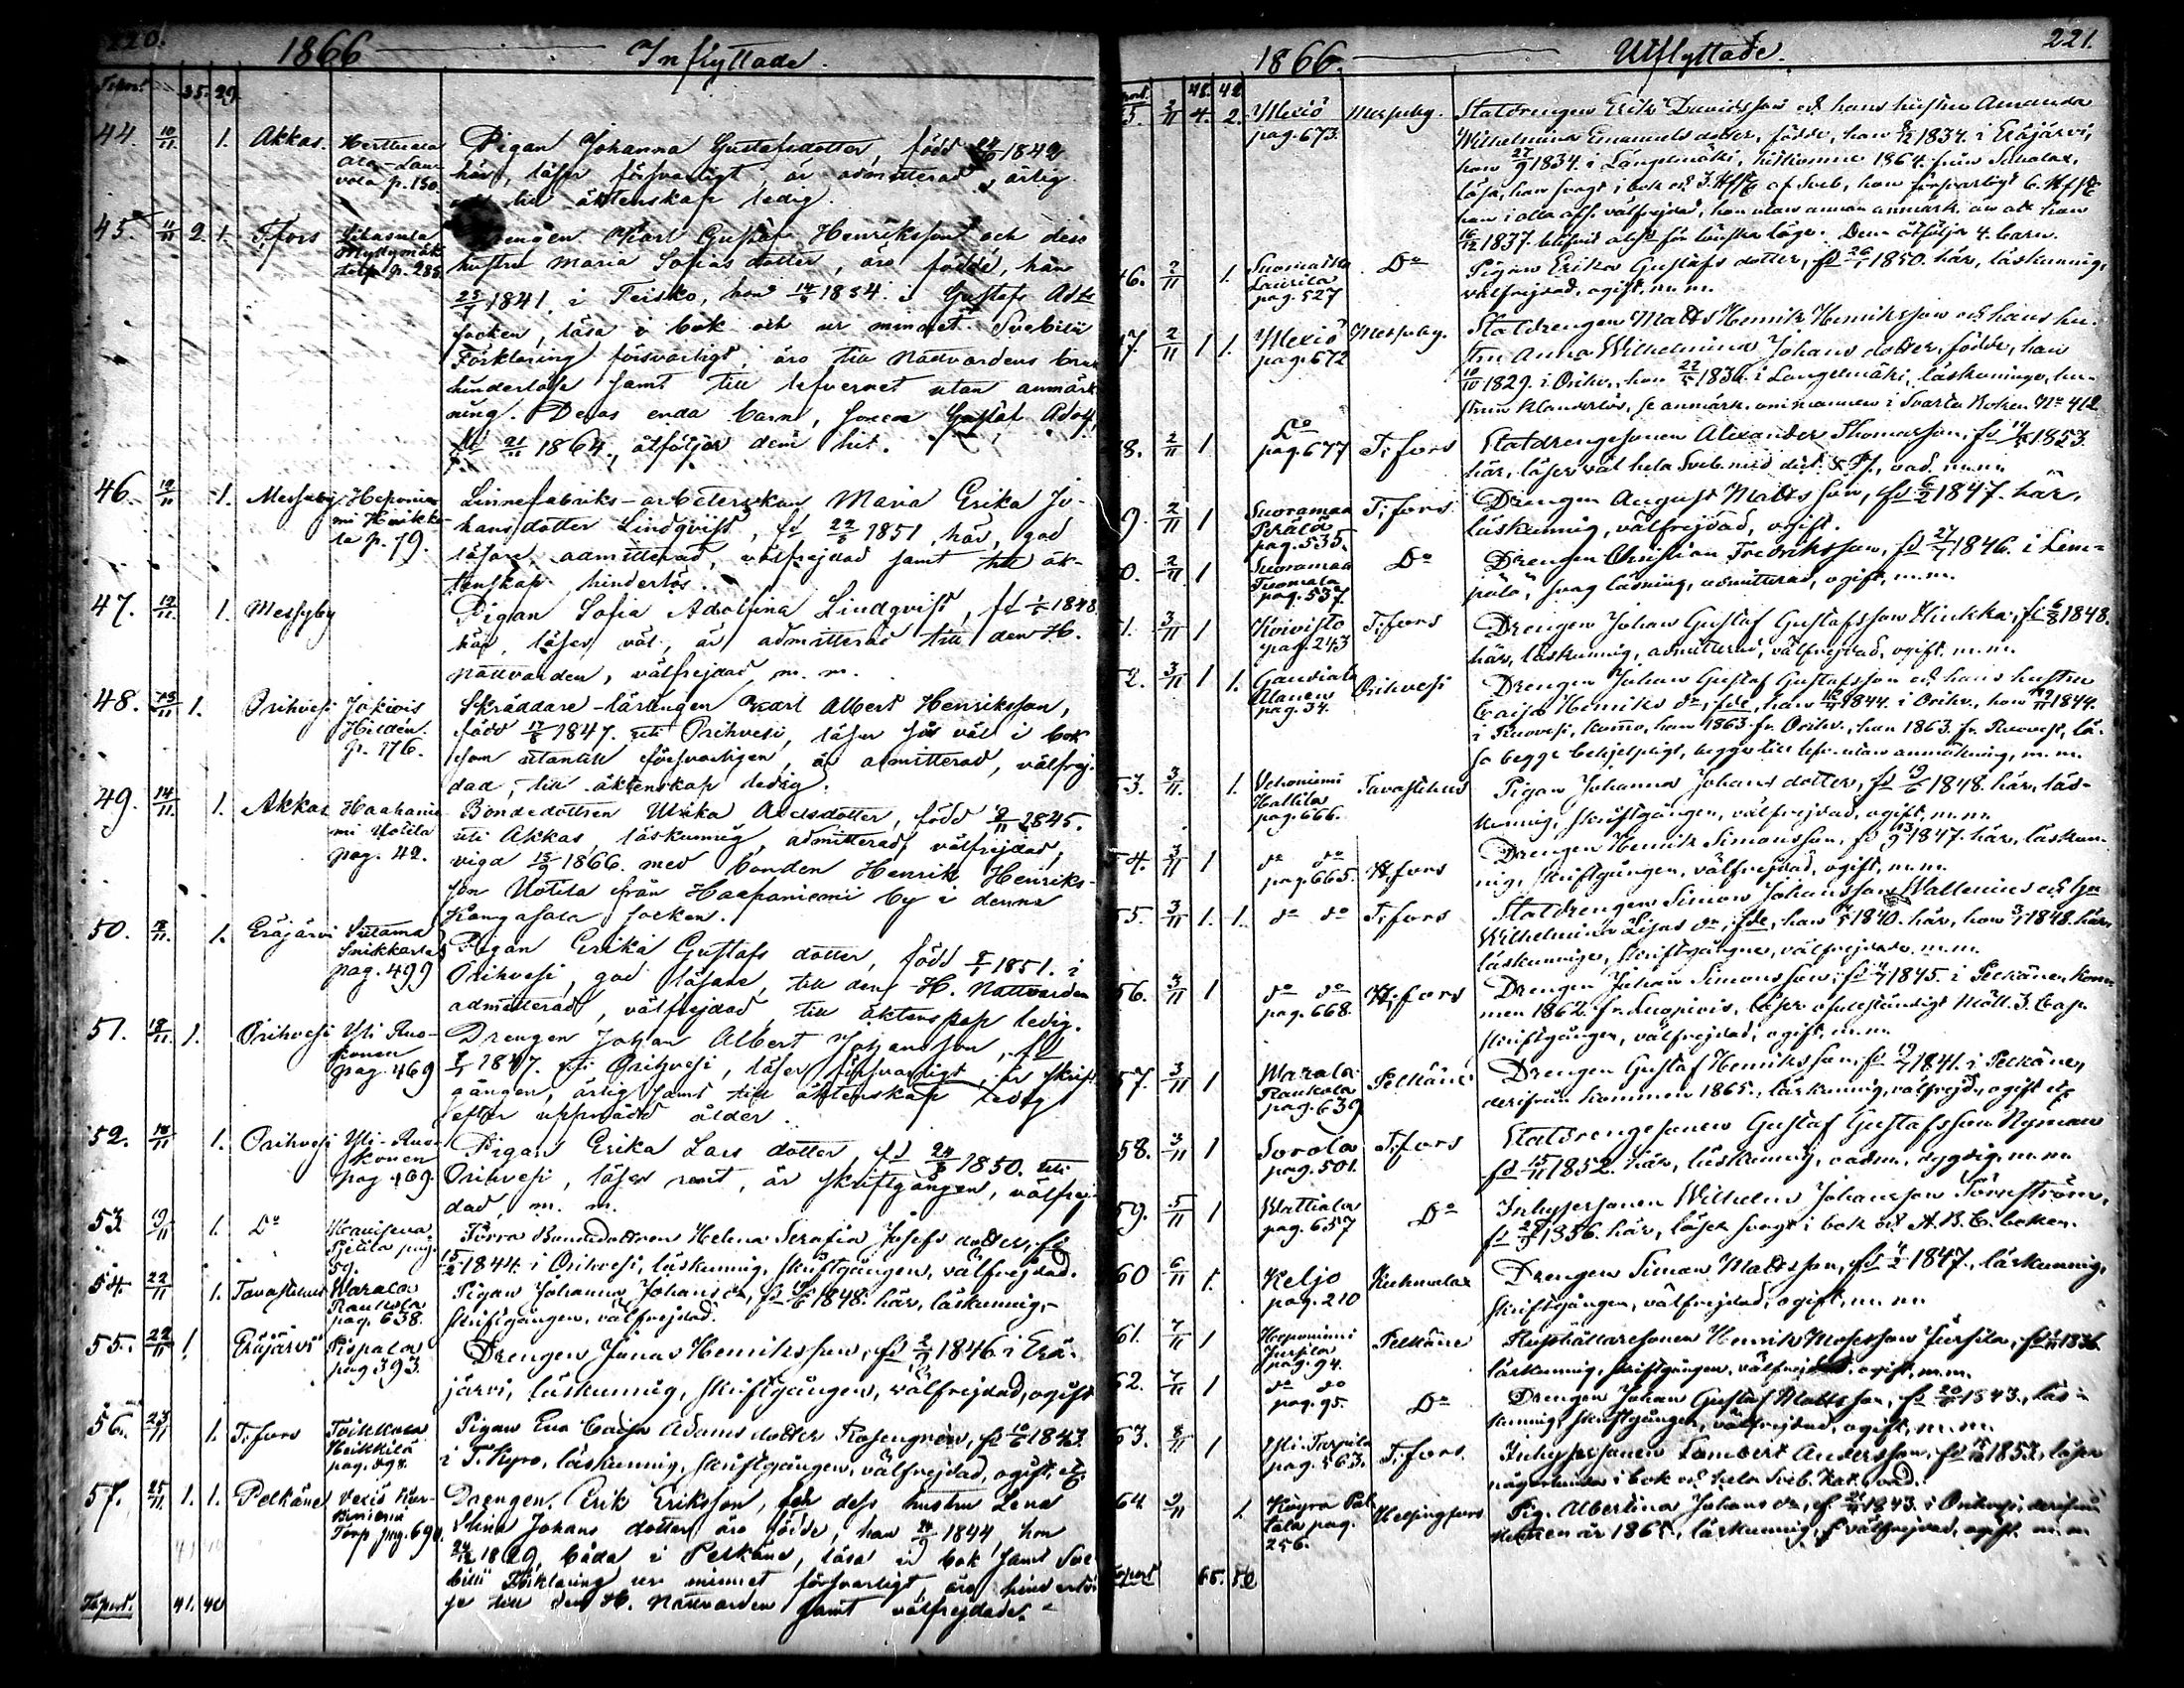 220.
1866 Inflyttade.
Transp. 35. 29.
44. 10/11 1. Akkas. Herttuala
p. 150.
Pigan Johanna Gustafsdotter, född 1842
här, läser försvarligt är admitterad, ärlig
till äktenskap ledig.
45. 11/11 2. 1. T:fors Liuksiala
Myllymäki
torp p. 285
Drengen Karl Gustaf Henriksson och dess
hustru Maria Sofias dotter, äro födde, han
1841 i Teisko, hon 1834 i Gustaf Adfs
socken, läsa i bok och ur minnet Svebilii
Förklaring försvarligt, äro till Nattvardens bruk
hinderlöse samt till lefvernet utan anmärk
ning. Deras enda barn, sonen Gustaf Adolf,
fd 21/11 1864, åtföljer dem hit.
46. 12/11 1. Messuby Haponie
mi Heikki-
la p. 79.
Linnefabriks-arbeterskan Maria Erika Jo-
hansdotter Lindqvist, fd 22/5 1851 här, god
läsare, admitterad, välfrejdad samt till äk-
tenskap hinderlös.
47. 12/11 1. Messuby
Pigan Sofia Adolfina Lindqvist, fd 1848
här, läser väl, är admitterad till den H.
Nattvarden, välfrejdad m. m.
48. 13/11 1. Orihvesi Jokiois
Hildén.
p. 176.
Skräddare-lärlingen Karl Albert Henriksson,
född 17/8 1847. uti Orihvesi, läser så väl i bok
som utantill försvarligen, är admitterad, välfrej-
dad, till äktenskap ledig.
49. 14/11 1. Akkas Haapanie
mi Uotila
pag. 42.
Bondedottren Ulrika Axelsdotter, född 8/11 1845.
uti Akkas, läskunnig, admitterad, välfrejdad,
vigd 1866 med bonden Henrik Henriks-
son Uotila från Haapaniemi by i denna
Kangasala socken.
50. 11. 1. Eräjärvi
Snikkarla
pag. 499
Pigan Erika Gustafs dotter, född 1851. i
Orihvesi, god läsare, till den H. Nattvarden
admitterad, välfrejdad, till äktenskap ledig.
51. 18/11 1. Orihvesi Yli Ruo-
konen
pag. 469
Drengen Johan Albert Johansson, fd
1847. uti Orihvesi, läser försvarligt, är skrift
gången, ärlig samt till äktenskap ledig
efter uppnådd ålder.
52. 18/11 1. Orihvesi Yli-Ruo-
konen
pag 469.
Pigan Erika Lars dotter, fd 24/8 1850. uti
Orihvesi, läser rent, är skriftgången, välfrej-
dad, m. m.
53 19/11 1. Do
Pjetilä pag.
59.
Förra Bondedottren Helena Serafia Josefs dotter, fd
15/2 1844 i Orihvesi, läskunnig, skriftgången, välfrejdad.
54. 22/11 1. Tavastehus Warala
Raukola
pag. 638.
Pigan Johanna Johans dr, fd 19/6 1848. här, läskunnig,
skriftgången, välfrejdad.
55. 22/11 1 Eräjärvi Pispala
pag 393.
Drengen Jonas Henriksson, fd 1846 i Erä-
järvi, läskunnig, skriftgången, välfrejdad, ogift
56. 23/11 1. T:fors Toikkola
Heikkilä
pag. 498.
Pigan Eva Caisa Adams dotter Rosengrén, fd 10/6 1843.
i T. Kyro, läskunnig, skriftgången, välfrejdad, ogift, etc.
57. 25/11 1. 1. Pelkäne
Torp pag. 690.
Drengen Erik Eriksson, och dess hustru Lena
Stina Johans dotter, äro födde, han 1844, hon
24/12 1829, båda i Pelkäne, läsa i bok samt Sve
bilii Förklaring ur minnet försvarligt, äro hinderlö
se till den H. Nattvarden samt välfrejdade.
Trsport. 41. 40
221.
1866. Utflyttade.
48. 42
2/11 4. 2. Mexiö
pag. 673.
Messuby.
Statdrengen Erik Davidsson och hans hustru Amanda
Wilhelmina Emanuels dotter, födde, han 1834. i Eräjärvi,
hon 27/9 1834. i Längelmäki, hitkomne 1864. från Sahalax,
läsa, han svagt i bok och 3. Hfst. af Sveb., hon försvarligt 6. Hfst.
16/12 1837. Dem åtfölja 4. barn.
46. 2/11 1. Suomatka
Laurila
pag. 527
Do
Pigan Erika Gustafs dotter, fd 26/1 1850. här, läskunnig,
välfrejdad, ogift, m. m.
47. 2/11 1 1. Mexiö
pag. 672
Messuby.
Statdrengen Matts Henrik Henriksson och hans hu-
stru Anna Wilhelmina Johans dotter, födde, han
10/10 1829. i Orihv., hon 22/5 1836. i Längelmäki, läskunnige, hu-
strun klanderlös, se anmärk. om mannen i Svarta Boken No 412
48. 2/11 1 Do
pag. 677
T:fors
Statdrengesonen Alexander Thomasson, fd 1853.
här, läser väl hela Sveb. med m. m.
49. 2/11 1 Suoramaa
Perälä
pag. 535.
T:fors
Drengen August Mattsson, fd 6/2 1847. här,
läskunnig, välfrejdad, ogift.
50. 2/11 1 Suoramaa
Tuomala
pag. 537.
Do
Drengen Christian Fredriksson, fd 27/7 1846. i Lem-
pälä, svag läsning, admitterad, ogift, m. m.
51. 3/11 1 Koivisto
pag. 243
T:fors
Drengen Johan Gustaf Gustafsson Hukka, fd 6/8 1848.
här, läskunnig, admitterad, välfrejdad, ogift, m. m.
52. 3/11 1 1. Gaudiala
Alanen
pag. 34.
Orihvesi
Drengen Johan Gustaf Gustafsson och hans hustru
Caisa Henriks dr, fde, han 1844. i Orihv., hon 1844.
i Ruovesi, komna, han 1863 fr. Orihv., hon 1863 fr. Ruovesi, lä-
sa begge behjelpligt, begge till lefv. utan anmärkning, m. m.
53. 3/11 1. Vehoniemi
Hallila
pag. 666.
Tavastehus
Pigan Johanna Johans dotter, fd 19/6 1848. här, läs-
kunnig, skriftgången, välfrejdad, ogift, m. m.
54. 3/11 1 do do
pag. 665.
H:fors
Drengen Henrik Simonsson, fd 23/9 1847. här, läskun-
nig, skriftgången, välfrejdad, ogift, m. m.
55. 3/11 1. 1. do do
T:fors
Statdrengen Simon Johansson Wallenius och hu
Wilhelmina Lisas dr, fde, han 1840. här, hon 1848. här,
läskunnige, skriftgångne, välfrejdade. m. m.
56. 3/11 1 do do
pag. 668.
H:fors
Drengen Johan Simonsson, fd 1845. i Pelkäne, kom
men 1862. fr. Luopiois, läser ofullständigt Möll. 3. Cap.
skriftgången, välfrejdad, ogift, m. m.
57. 3/11 1 Warala
Raukola
pag. 639
Pelkäne
Drengen Gustaf Henriksson, fd 19/7 1841. i Pelkäne,
derifrån kommen 1865., läskunnig, välfrejd., ogift etc.
58. 3/11 1 Sorola
pag. 501.
T:fors
Statdrengesonen Gustaf Gustafsson Nyman
fd 15/11 1852. här, läskunnig, oadm., dygdig, m. m.
59. 5/11 1 Wattiala
pag. 657
Do
Inhysesonen Wilhelm Johansson Törnström,
fd 1856. här, läser svagt i bok och A. B. C. boken.
60 6/11 1. Keljo
pag. 210
Kuhmalax
Drengen Simon Mattsson, fd 1847., läskunnig,
skriftgången, välfrejdad, ogift, m. m.
61. 7/11 1 Haponiemi
Jussila
pag. 94.
Pelkäne
Henrik Mosesson Jussila, fd 1836.
läskunnig, skriftgången, välfrejdad, ogift, m. m.
62. 7/11 1 do do
pag. 95.
Do
Drengen Johan Gustaf Mattsson, fd 20/6 1843., läs-
kunnig, skriftgången, välfrejdad, ogift, m. m.
63. 8/11 1 Yli-Tarpila
pag. 563.
T:fors.
Inhysesonen Lambert Andersson, fd 1853, läser
någorlunda i bok och hela Sveb. Kat., oad.
64. 9/11 1.
pag.
256.
Helsingfors
Pig. Albertina Johans dr, fd 1843. i Orihvesi, derifrån
år 1865., läskunnig, välfrejdad, ogift. m. m
Trsport 65. 50